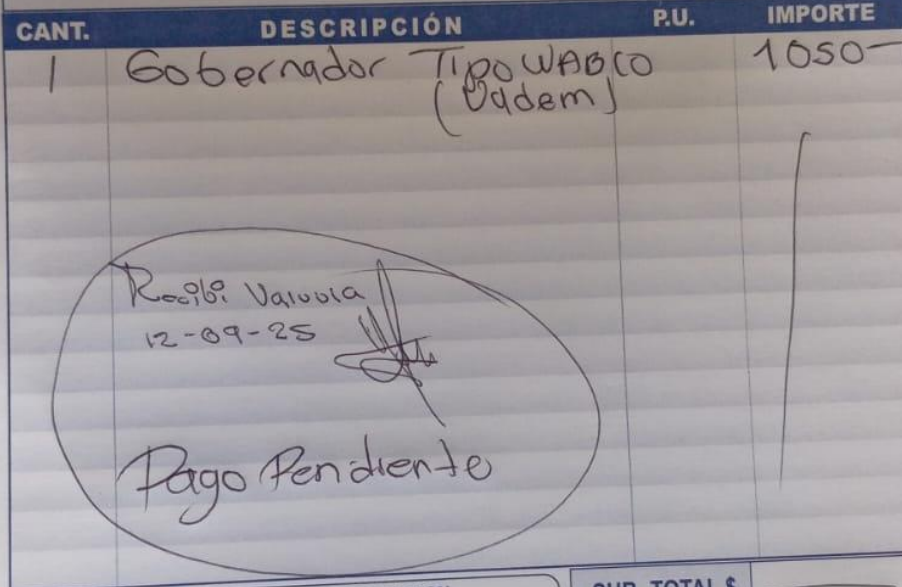 CANT. DESCRIPCIÓN P.U. IMPORTE
1 Gobernador Tipo WABCO 1050-
(Vadem)
Recibi Valvula
12-09-25
Pago Pendiente
SUB-TOTAL $